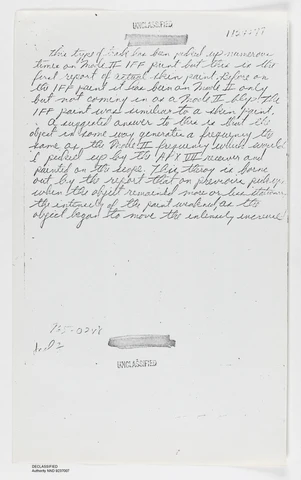 UNCLASSIFIED
this type of has been picked up numerous
times on Mode II IFF paint but this is the
first report of actual skin paint. Before on
the IFF paint it has been an Mode II only
but not coming in as a Mode II The
IFF paint was similar to a skin paint.
A suggested answer to this is that the
object in some way generates a frequency the
same as the Mode II frequency which would
picked up by the APX VIII receiver and
painted on the scope. This is borne
out by the report that on previous
when the object remained more or less
the intensity of the paint weakened, as the
object began to move the intensity increased
UNCLASSIFIED
DECLASSIFIED
Authority NND